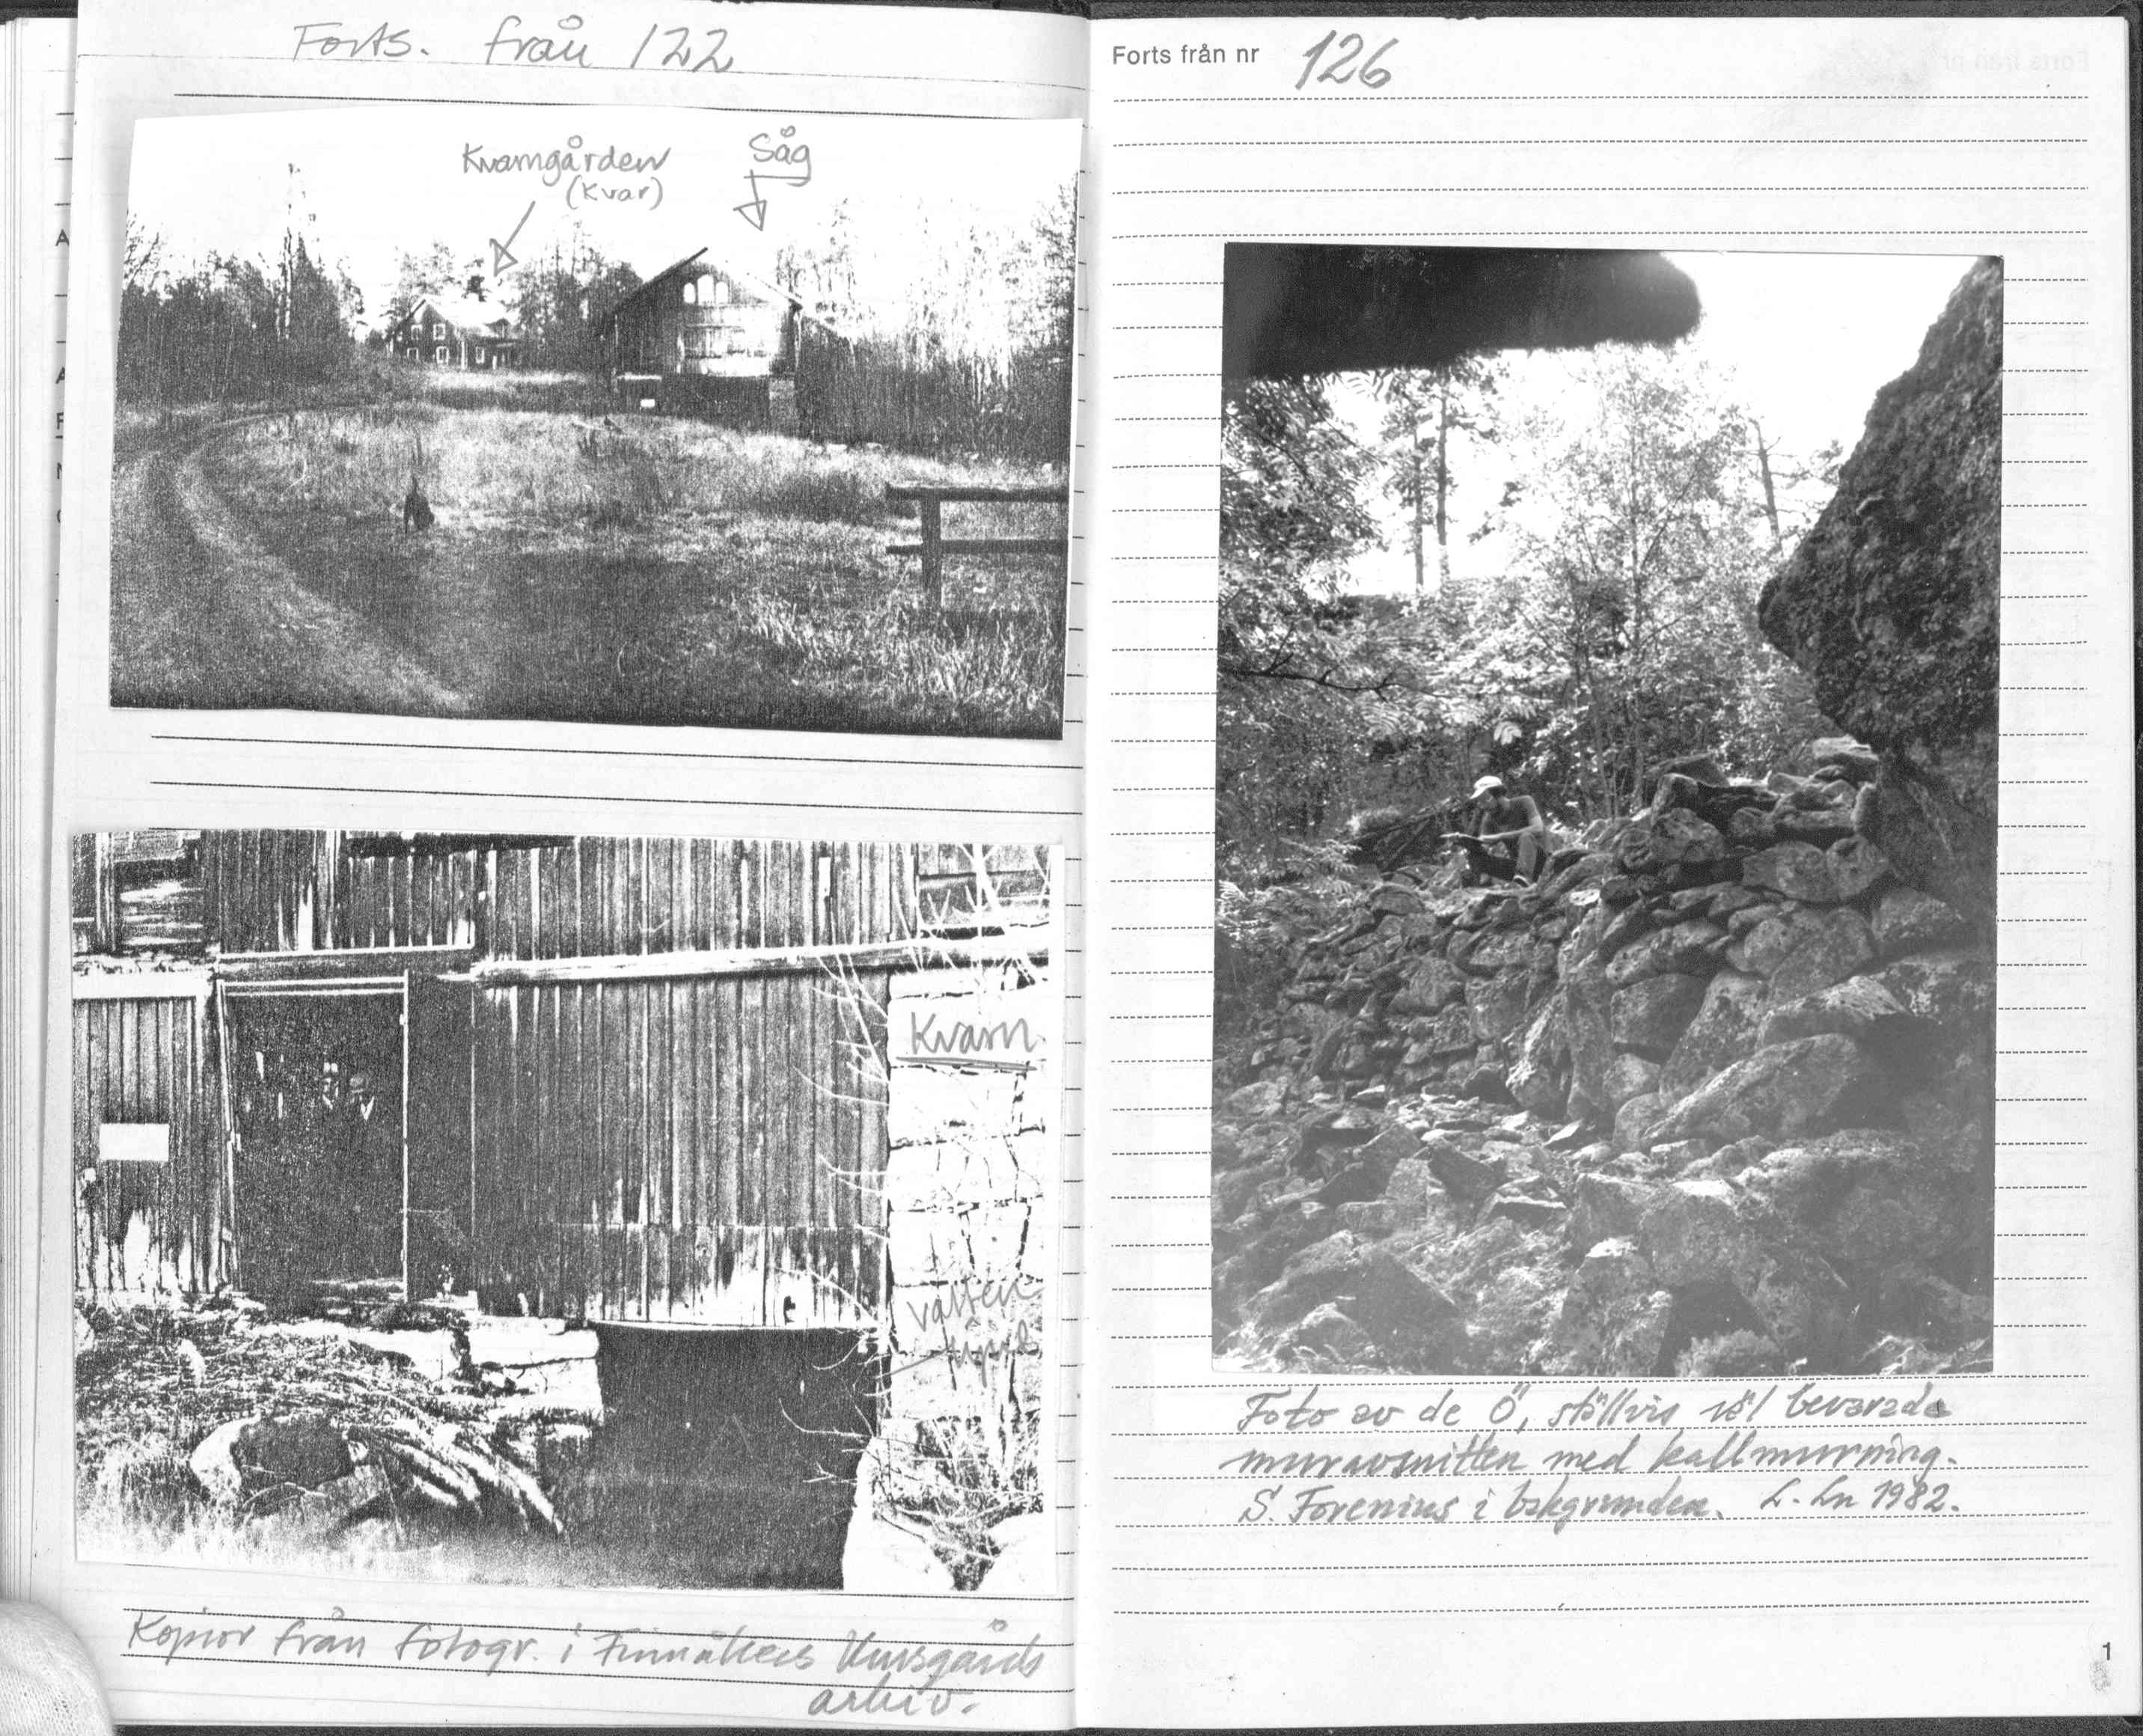 Forts. från 122
Kvarngården
(Kvar)
Såg
Kvarn
vatten
hjul
Kopior från fotogr. i Finnåkers Kursgårds
arkiv.
Forts från nr 126
Foto av de Ö, ställvis väl bevarade
muravsnitten med kallmurning.
S. Forenius i bakgrunden. L. Ln 1982.
1